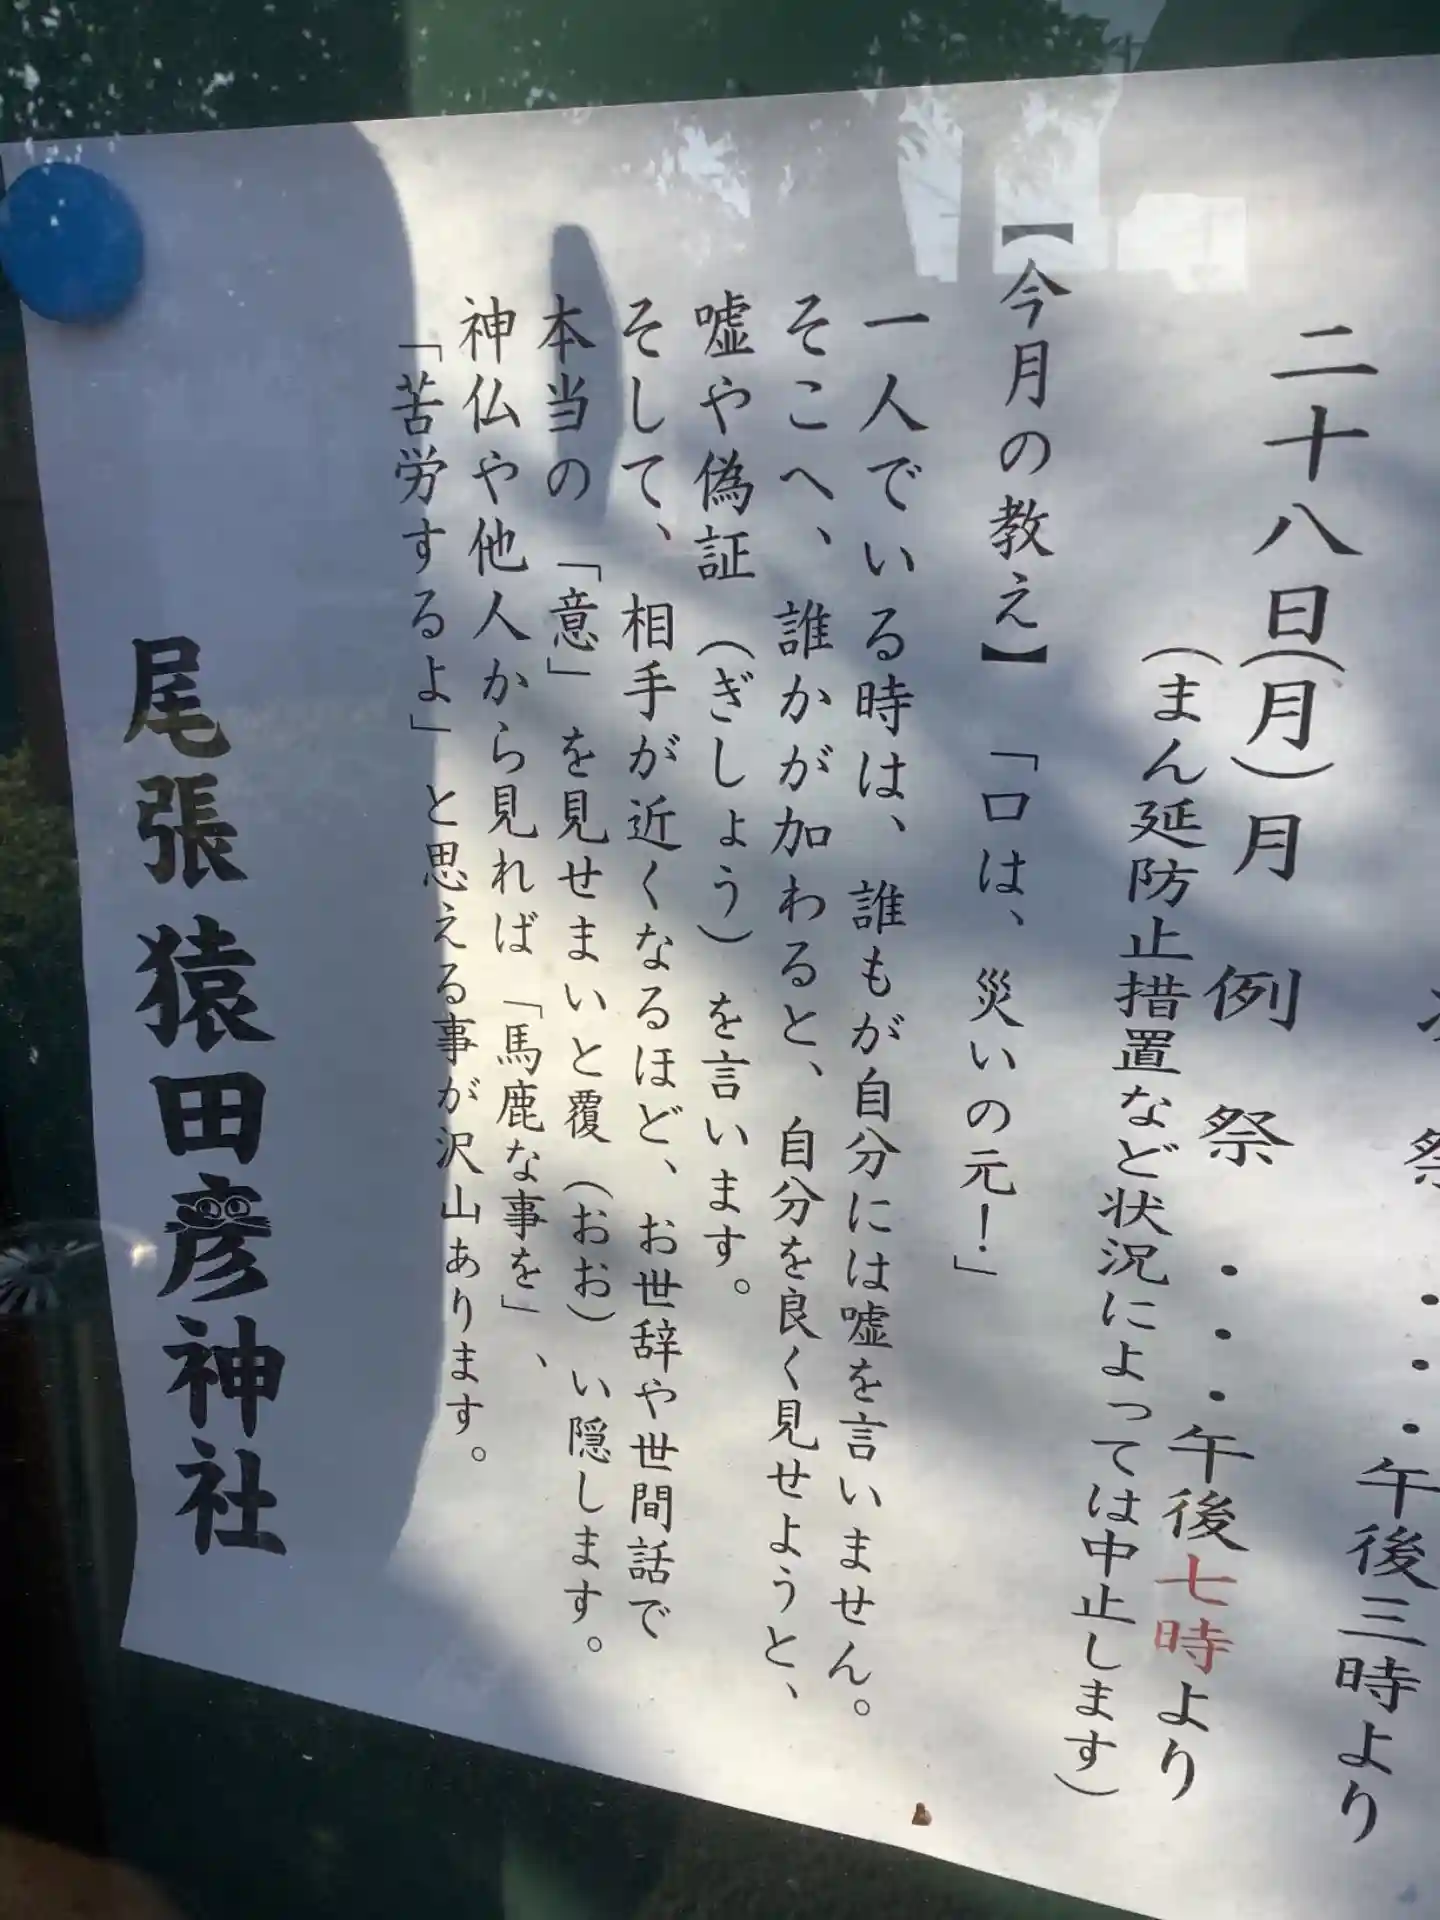 ・・・午後三時より
二十八日(月)月例祭・・・午後七時より
(まん延防止措置など状況によっては中止します)
【今月の教え】「口は、災いの元!」
一人でいる時は、誰もが自分には嘘を言いません。
そこへ、誰かが加わると、自分を良く見せようと、
嘘や偽証(ぎしょう)を言います。
そして、相手が近くなるほど、お世辞や世間話で
本当の「意」を見せまいと覆(おお)い隠します。
神仏や他人から見れば「馬鹿な事を」、
「苦労するよ」と思える事が沢山あります。
尾張猿田彦神社